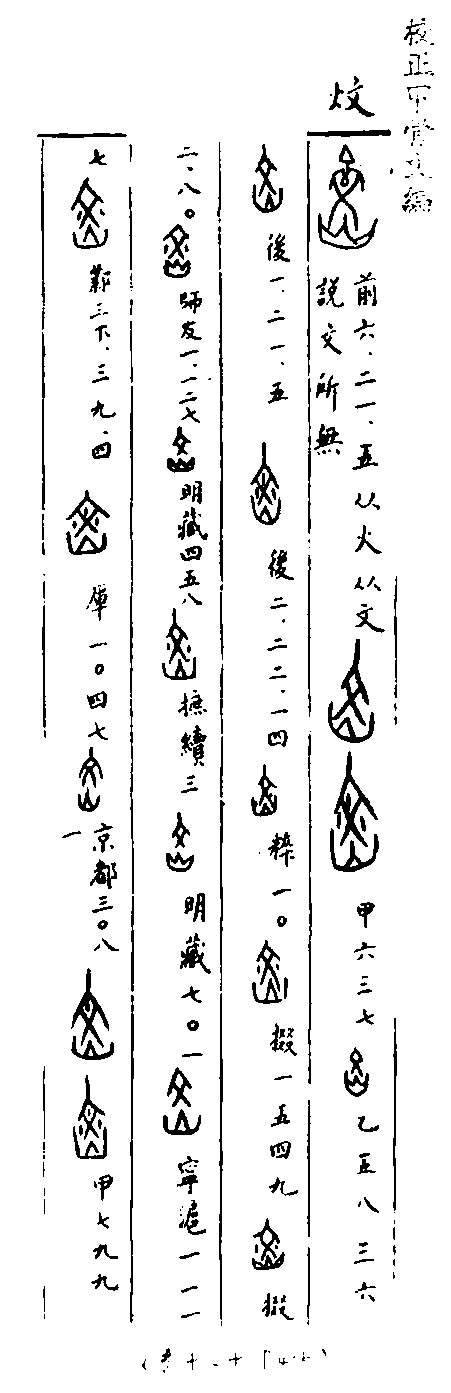 校正甲骨文編
炆
前六·二一·五 从火从文
說文所無
甲六三七
乙五八三六
後一·二一·五
後二·二二·一四
粹一〇
掇一五四九
掇
二·八〇
師友一·一二七
明藏四五八
摭續三
明藏七〇一
寧滬一一一
七
鄴三下·三九·四
庫一〇四七
京都三〇八
一
甲七九九